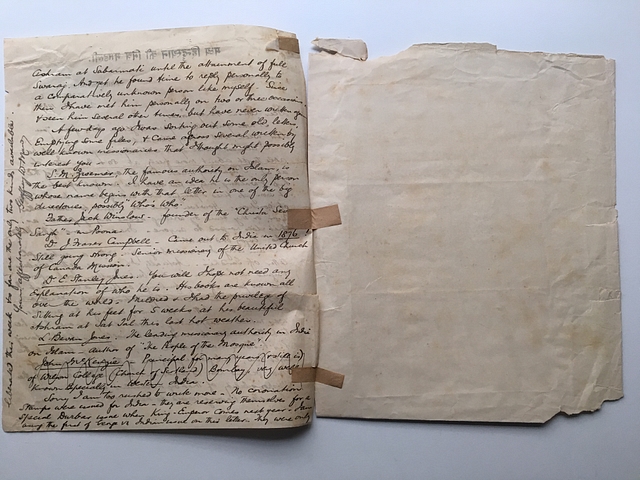 Ashram at Sabarmati until the attainment of full
Swaraj. And yet he found time to reply personally to
a comparatively unknown person like myself. Since
then I have met him personally on two or three occasions
& seen him several other times, but have never written
A few days ago I was sorting out some old letters,
Emptying some files, & came across several written by
well known missionaries that I thought might possibly
interest you
S. M. Zwemer, the famous authority on Islam, is
the best known. I have an idea he is the only person
whose name begins with that letter in one of the big
directories, possibly "Who's Who"
Father Jack Winslow - founder of the "Christa Seva
Sangh" in Poona.
Dr J Fraser Campbell - Came out to India in 1876 &
still going strong. Senior missionary of the United Church
of Canada Mission.
Dr E Stanley Jones. You will I hope not need any
explanation of who he is. His books are known all
over the world. Mildred & I had the privilege of
sitting at his feet for 5 weeks at his beautiful
Ashram at Sat Tal this last hot weather.
L Bevan Jones. The leading missionary authority in India
on Islam. Author of "The People of the Mosque".
John McKenzie Principal for many years (& still is)
of Wilson College (Church of Scotland) Bombay, very well
known especially in Western India.
Sorry I am too rushed to write more. No coronation
stamps were issued for India - they are reserving themselves for a
special Durbar issue when King-Emperor comes next year.
the first of George VI Indian issue on this letter. They were only
released this week. So far are the only two kinds available.
Yours affectionately